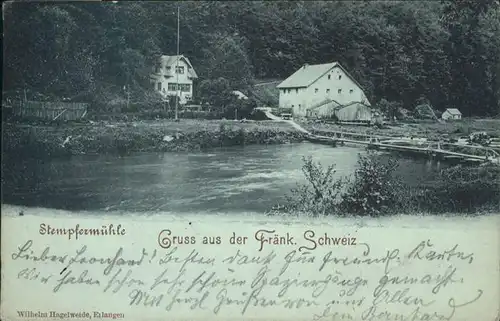 Stempfermühle
Gruss aus der Fränk. Schweiz
Lieber Leonhard! Besten Dank für freund. Karte,
Wir haben sehr schöne Spaziergänge gemacht.
Mit herzl. Grüßen von uns Allen
Dein Bernhard
Wilhelm Hagelweide, Erlangen